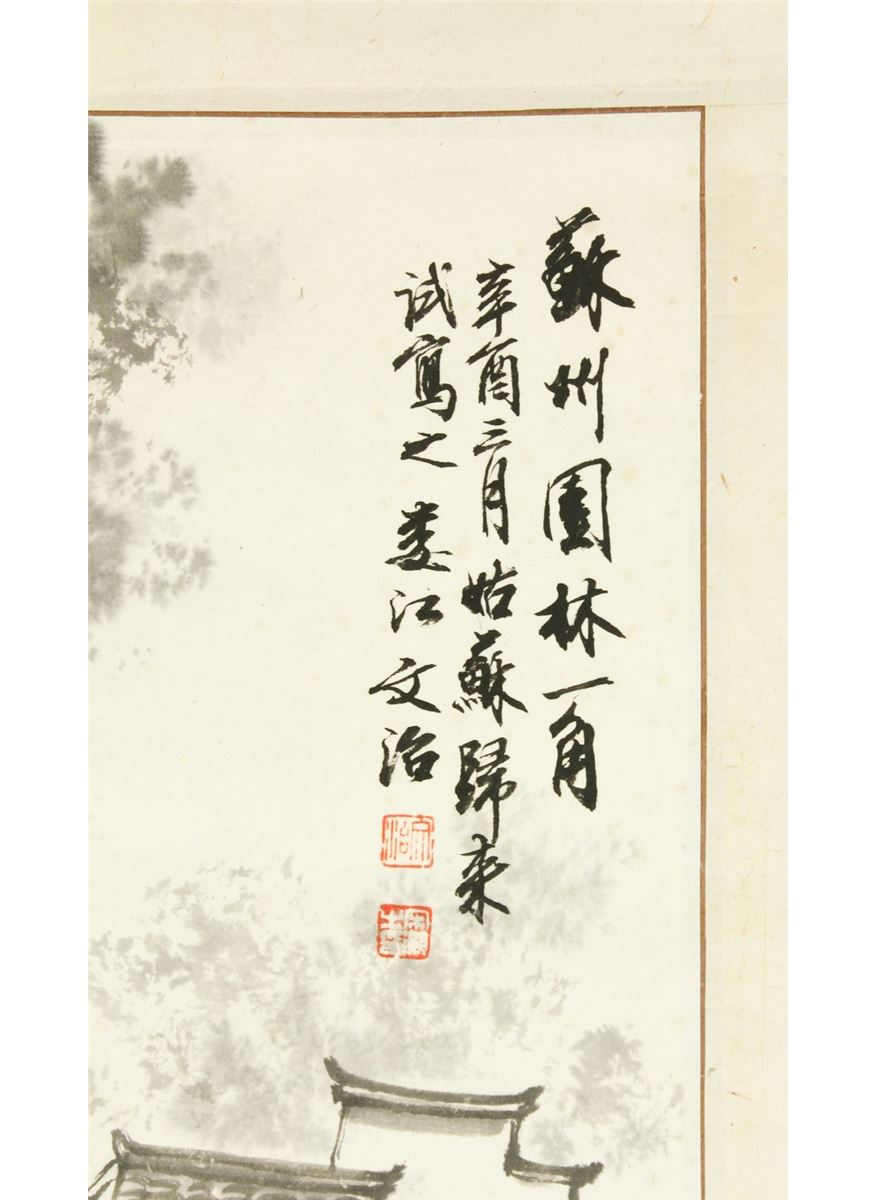 蘇州園林一角
辛酉三月姑蘇歸來
试寫之婁江文治